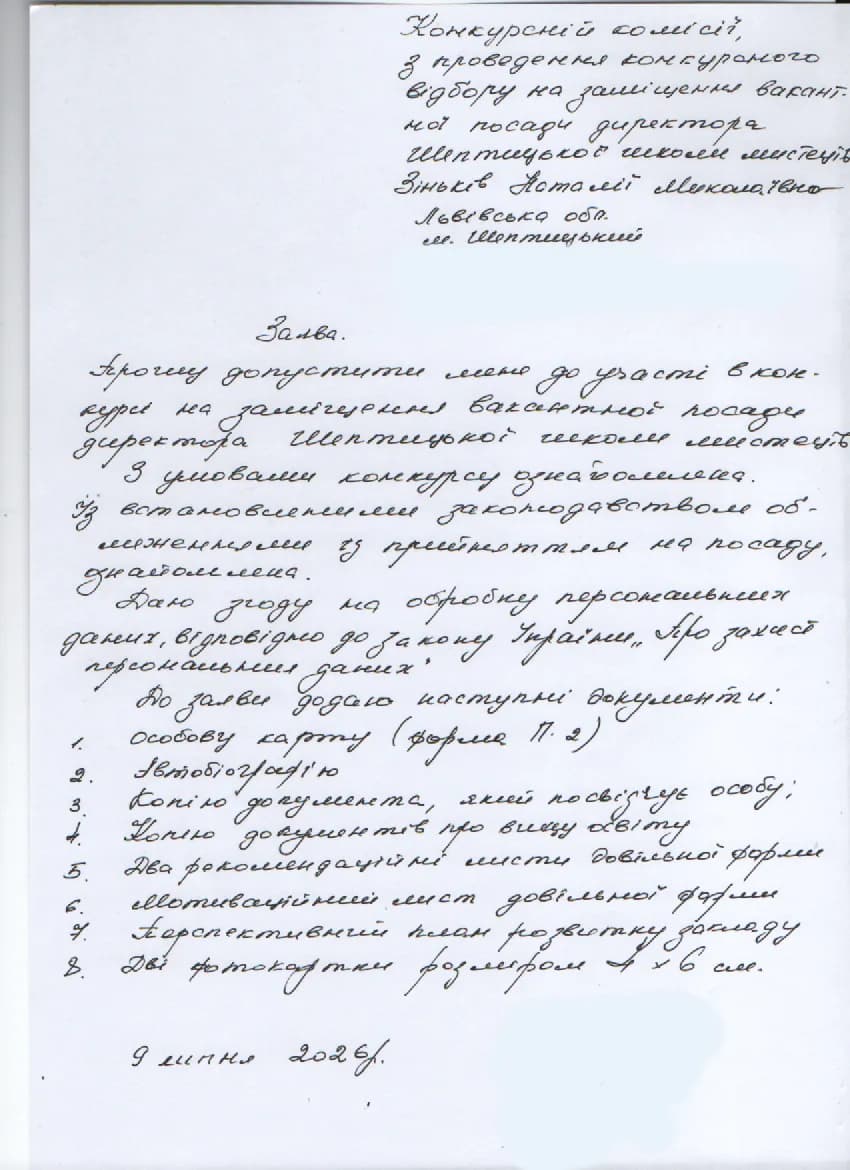 Конкурсній комісії,
з проведення конкурсного
відбору на заміщення вакант-
ної посади директора
Шептицької школи мистецтв
Зіньків Наталії Миколаївно
Львівська обл.
м. Шептицький
Заява.
Прошу допустити мене до участі в кон-
курсі на заміщення вакантної посади
директора Шептицької школи мистецтв
З умовами конкурсу ознайомлена.
Із встановленими законодавством об-
меженнями із прийняттям на посаду,
ознайомлена.
Даю згоду на обробку персональних
даних, відповідно до закону України „Про захист
персональних даних"
До заяви додаю наступні документи:
1. Особову карту (форма П. 2)
2. Автобіографію
3. Копію документа, який посвідчує особу;
4. Копію документів про вищу освіту
5. Два рекомендаційні листи довільної форми
6. Мотиваційний лист довільної форми
7. Перспективний план розвитку закладу
8. Дві фотокартки розміром 4 x 6 см.
9 липня 2026р.